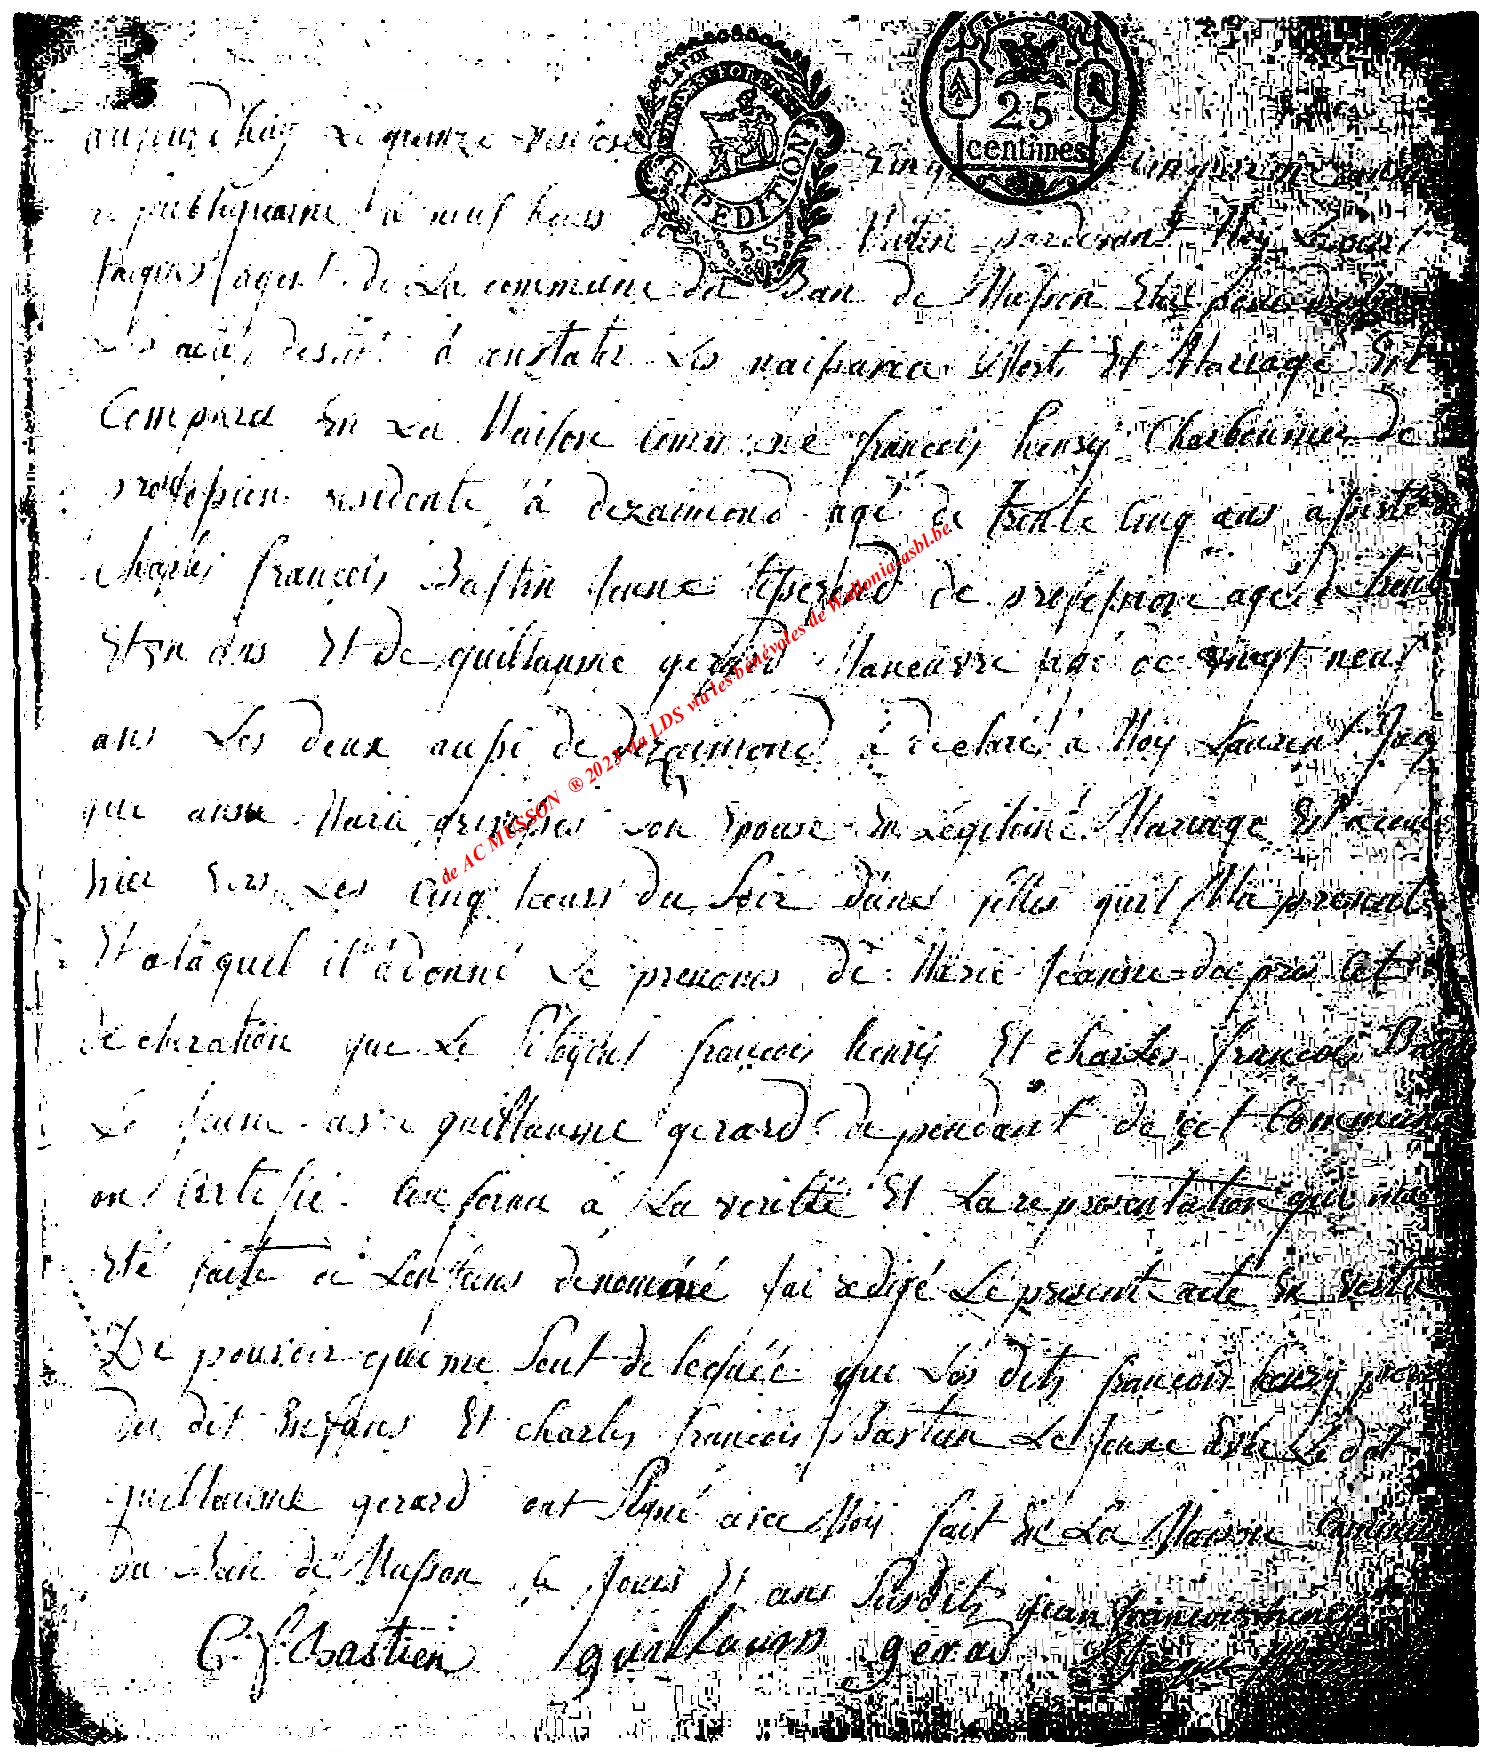 TIMBRE
EXPEDITION
5.S
25
centimes
aujourdhuy Le quinze
republiquaine a neuf heurs Matin pardevant Moy Laurent
Jaques agent de La commune du Ban de Musson
a constater Les naissance Mort Et Mariage Est
Comparu En La Maison Commune francois henry Charbonnier de
proffession residente á dezaimond agé de trente Cinq ans assisté de
Charles francois Bastin Jeune tisserand de profession agé de trente
Et un ans Et de guillaume gerard Maneuvre agé de vingt neuf
ans Les deux aussi de dezaimond á declaré á Moy Laurent Jaq
que anne Marie son Epouse En Légitimé Mariage Est acou
hier vers Les Cinq heurs du Soir dúne fille quil Ma presenté
Et a láquel il á donné Le prenoms de Marie Jeanne dapres cet
declaration que Le Citoyens francois henry Et charles francois Bas
Le Jeune avec guillaume gerard dependant de cet Commun
on Certifié Conforme a La verittè Et La representation quil ma
Eté faite de Lenfans denommé Jai redigé Le present acte En vertu
De pouvoir qui me Sont delequéé que Les dits francois henry pere
du dit Enfans Et charles francois Bastien Le Jeune avec Ledit
guillaume gerard ont Signé avec Moy fait En La Maison Commun
du Ban de Musson Le Jours Et ans Susdits jean francois henry
C. f. Bastien guillaume gerard
de AC MUSSON ® 2023 via LDS via les bénévoles de Wallonia.asbl.be